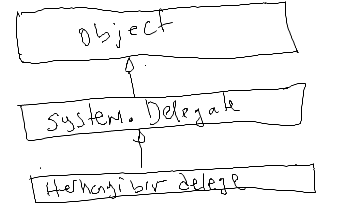 object
system. Delegate
Herhangi bir delege